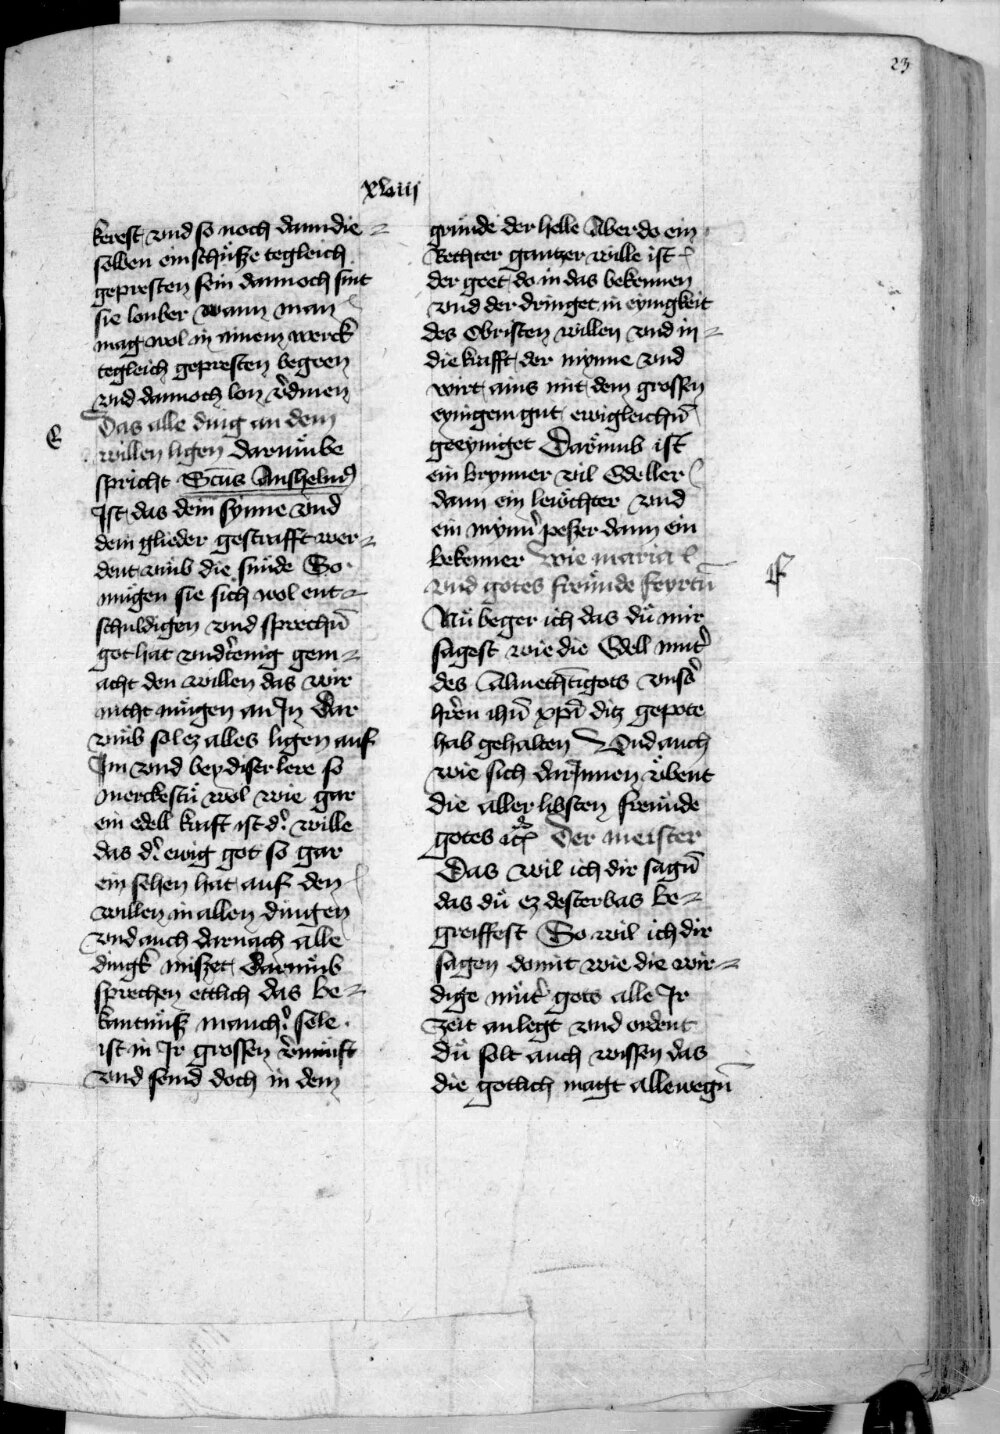 23
xlviij
kerest vnd so noch dann die
selben einschüsze tegleich
gepresten sein dannoch sint
sie louber wann man
mag wol in ainem werck
tegleich gepresten begeen
vnd dannoch lon v̉dinen
Das alle ding an dem
E
willen ligen darümbe
spricht Sc̄us Anshelmꝰ
Ist das dein synne vnd
dein glieder gestrafft wer-
dent vmb die sünde So
mügen sie sich wol ent-
schuldigen vnd sprechn̄
got hat vnd̉tenig gem-
acht den willen das wir
nicht mügen an In Dar
vmb sol ez alles ligen auf
Im vnd bey diser lere so
merckestü wol wie gar
ein edell kraft ist d̉ wille
das d̉ ewig got so gar
ein sehen hat auf den
willen in allen dingen
vnd auch darnach alle
dingk miszet Darümb
sprechen ettlich das be-
kantnüsz manch̉ sele
ist in Ir grossen v̉nünft
vnd seind doch in dem
gründe der helle Aber do ein
Rechter gantzer wille ist
der geet do in das bekennen
vnd der dringet in eynigkeit
des Obristen willen vnd in-
die krafft der mynne vnd
wirt ains mit dem grossen
eynigem gut ewigleichn̄
geeyniget Darümb ist
ein brynner vil Edeller
dann ein lewchter vnd
ein mynn̉ peszer dann ein
bekenner Wie maria
vnd gotes freünde feyrtn̄
F
Nü beger ich das dü mir
sagest wie die Edell mut̉
des Almechtigots vnsd̉
hr̉en ihū xp̄i ditz gepote
hab gehalten Vnd auch
wie sich darInnen übent
die aller libsten freünde
gotes Der meister
Das wil ich dir sagn̄
das dü ez desterbas be-
greiffest So wil ich dir
sagen domit wie die wir-
dige müt̉ gots alle Ir
zeit anlegt vnd ordent
Dü solt auch wissen das
die gotlich magt allewegn̄